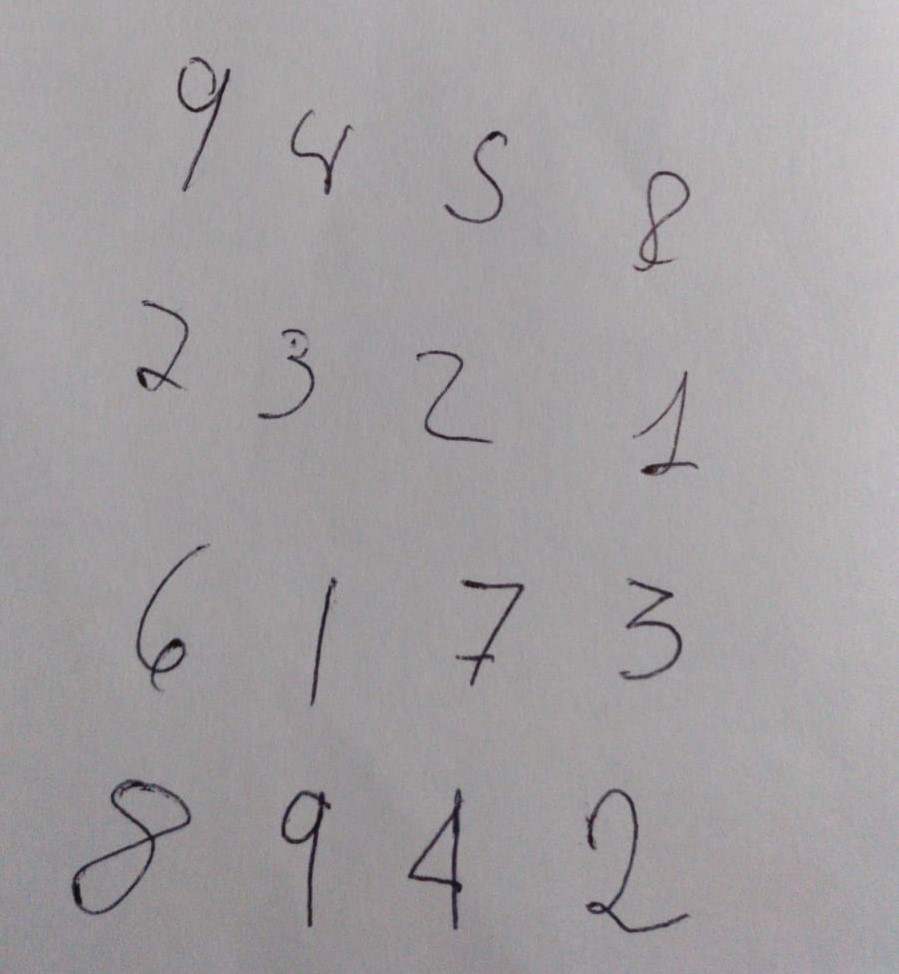 9 4 5 8
2 3 2 1
6 1 7 3
8 9 4 2